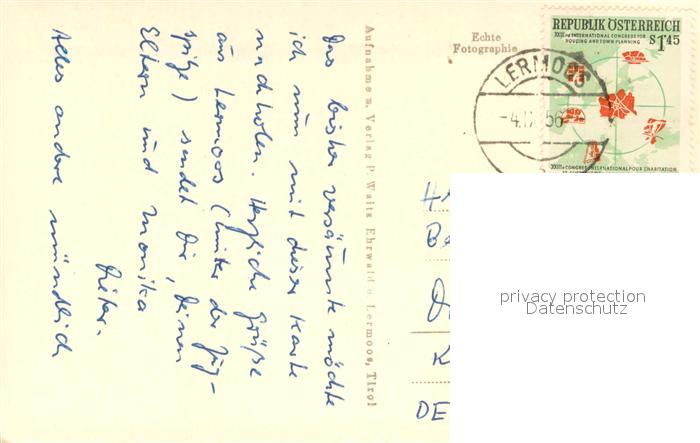 Das bisher versäumte möchte
ich nun mit dieser Karte
nachholen. Herzliche Grüße
aus Lermoos (hinter der Zug-
spitze) sendet Dir, Deinen
Eltern und Monika
Dieter.
Alles andere mündlich
Aufnahme u. Verlag P. Waitz Ehrwald u Lermoos, Tirol
Echte
Fotographie
REPUBLIK ÖSTERREICH
XXIIIrd INTERNATIONAL CONGRESS FOR
HOUSING AND TOWN PLANNING
S 1.45
LERMOOS
-4.IX.56
XXIIIe CONGRES INTERNATIONAL POUR L'HABITATION
DE
privacy protection
Datenschutz